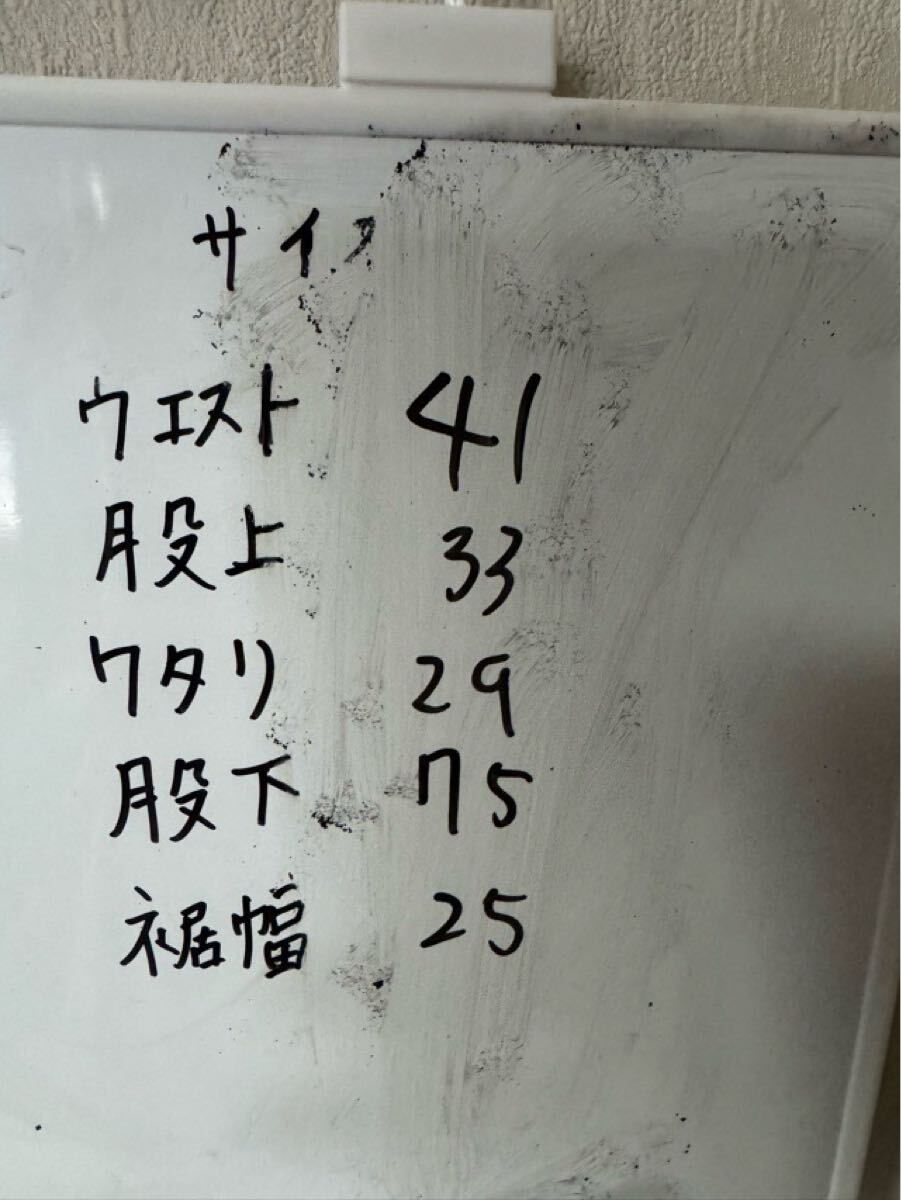 サイズ
ウエスト 41
股上 33
ワタリ 29
股下 75
裾幅 25